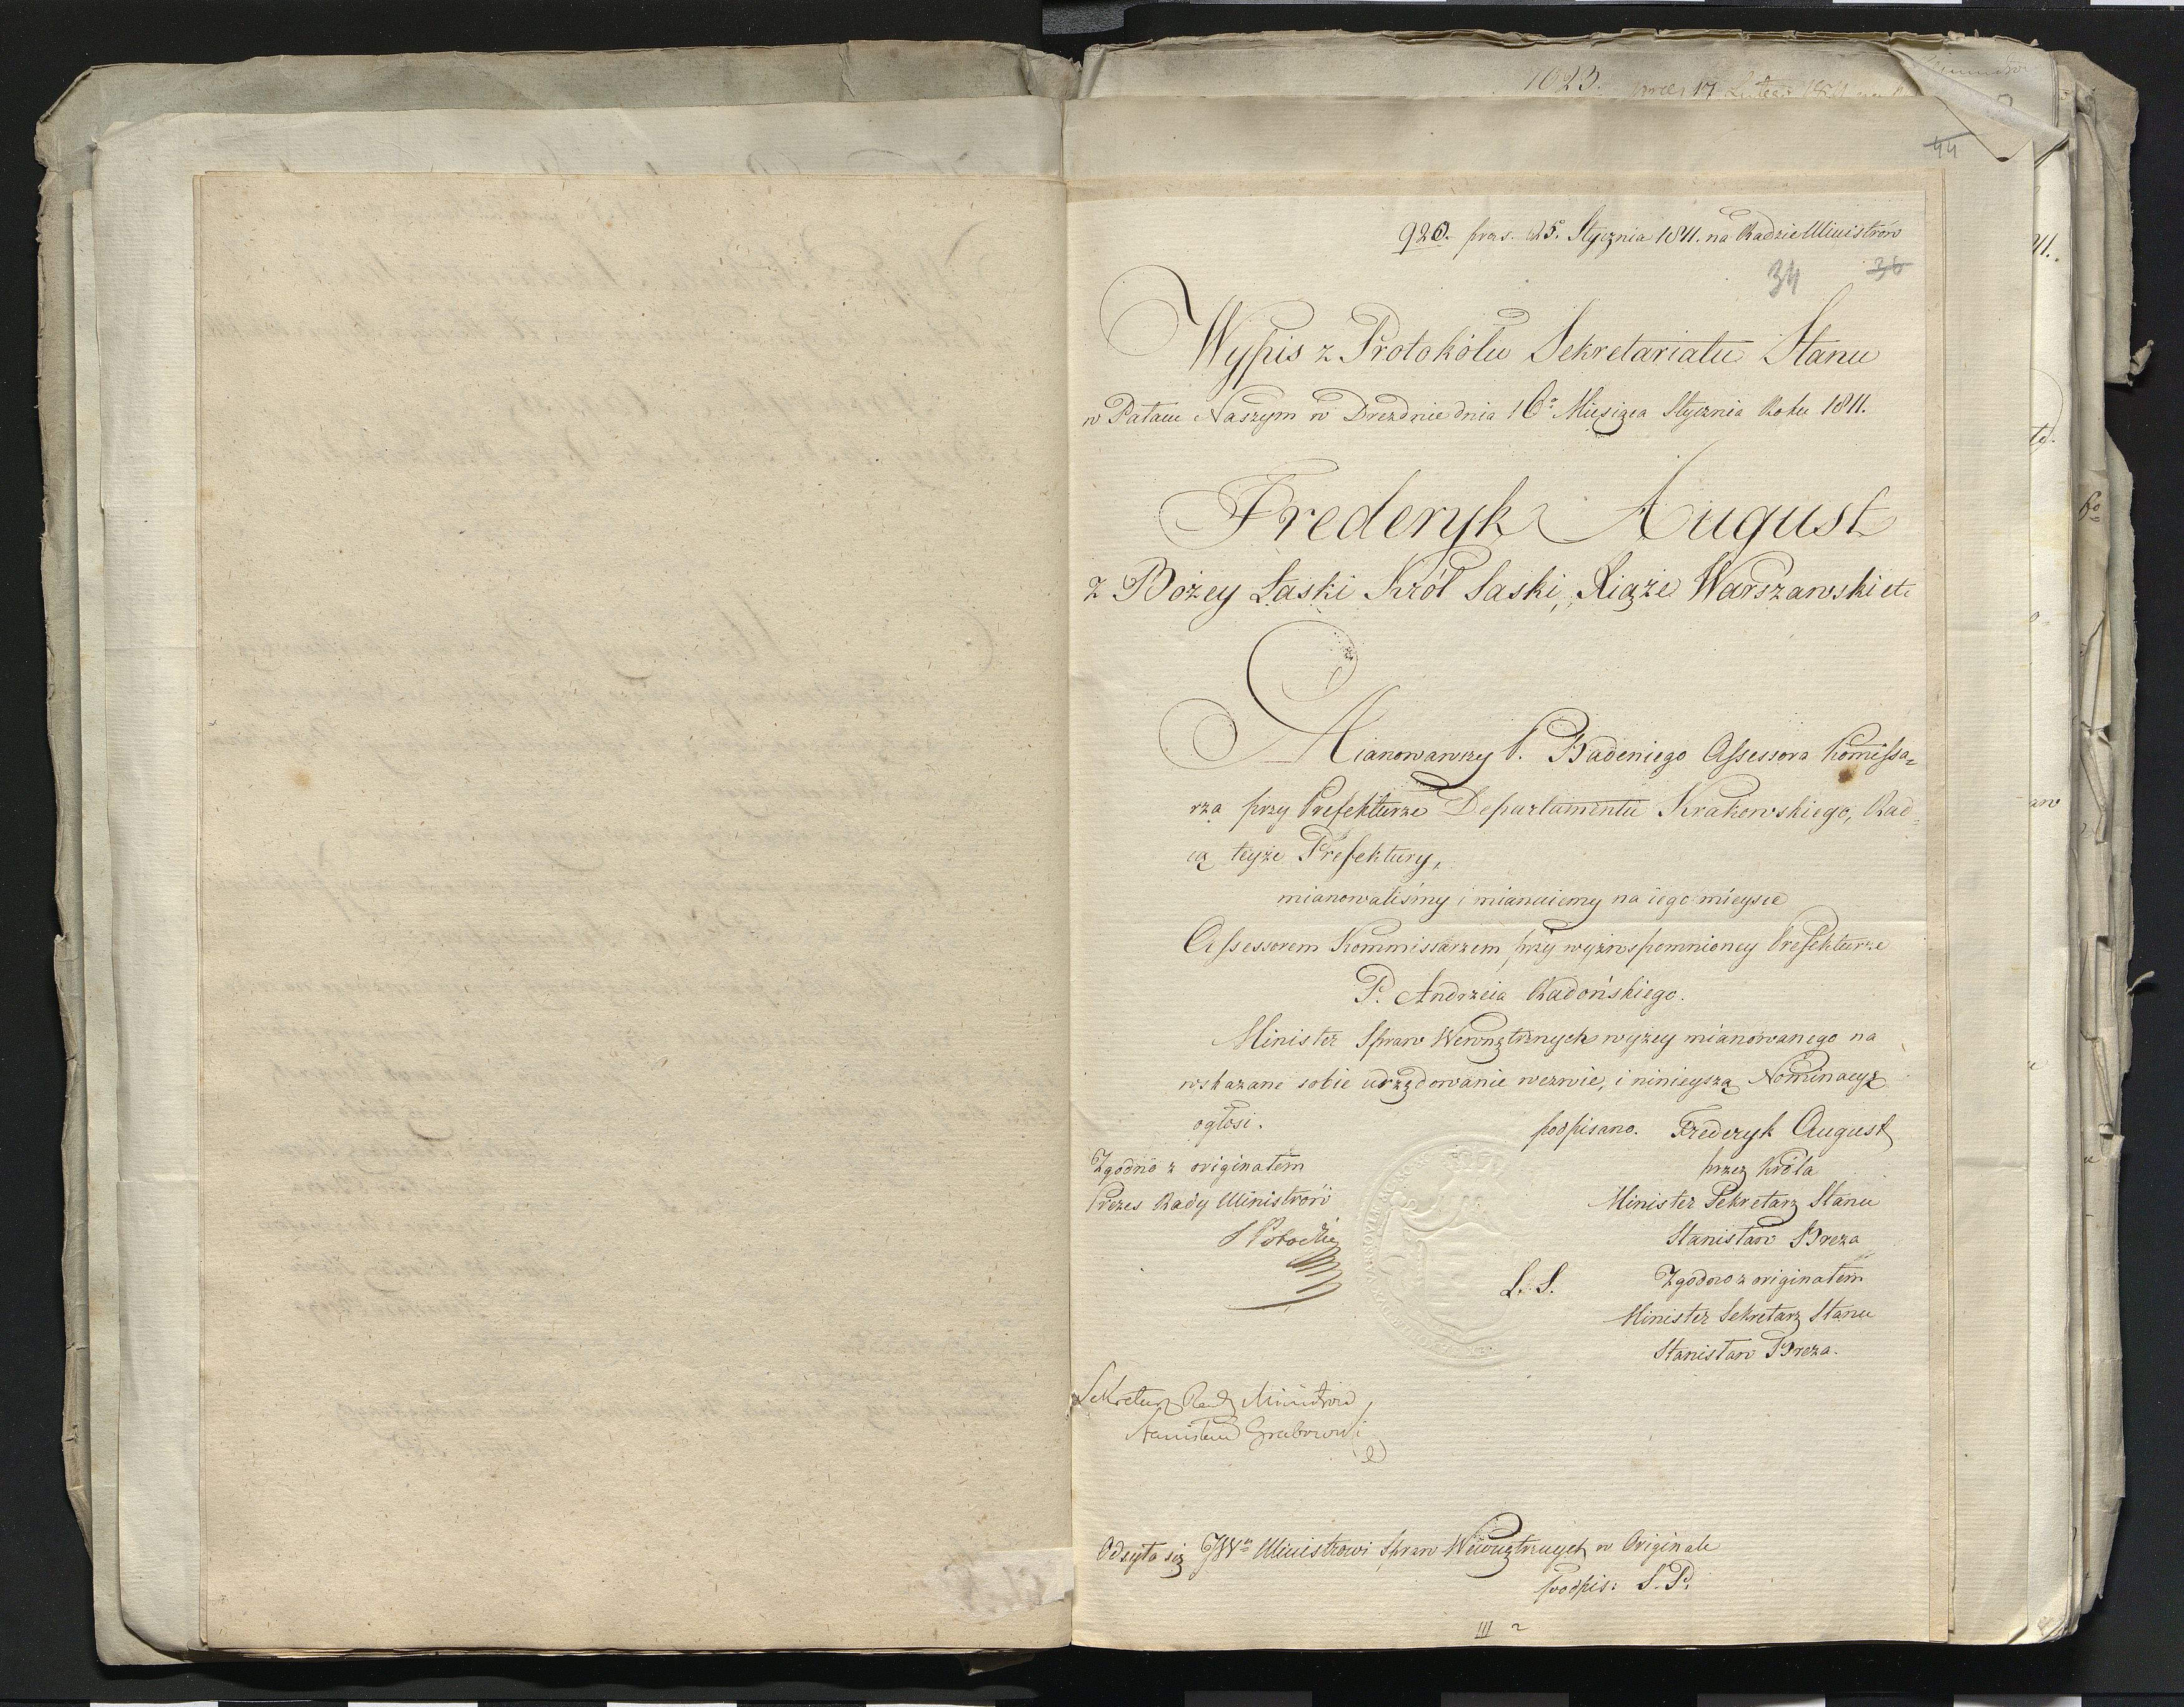 1023.
44
920. prze. 25. Stycznia 1811. na Radzie Ministrów
34 36
Wypis z Protokółu Sekretariatu Stanu
w Pałacu Naszym w Dreznie dnia 16° Miesiąca Stycznia Roku 1811.
Frederyk August
z Bożey Łaski Król Saski, Xiąże Warszawski etc
Mianowawszy P. Badeniego Assessora Komissa=
rza przy Prefekturze Departamentu Krakowskiego, Rad=
cą teyże Prefektury,
mianowaliśmy i mianuiemy na iego mieysce
Assessorem Kommissarzem przy wyżwspomnioney Prefekturze
P. Andrzeia Radońskiego.
Minister Spraw Wewnętrznych wyżey mianowanego na
wskazane sobie urzędowanie wezwie, i ninieyszą Nominacyę
ogłosi.
podpisano. Frederyk August
przez Króla
Minister Sekretarz Stanu
Stanisław Breza
Zgodno z originałem
Prezes Rady Ministrów
S Potocki
L. S.
Zgodno z originałem
Minister Sekretarz Stanu
Stanisław Breza.
Sekretarz Rady Ministrów
Stanisław Grabowski
Odsyła się JWu Ministrowi Spraw Wewnętrznych w Originale
podpis: S. P.
III 2